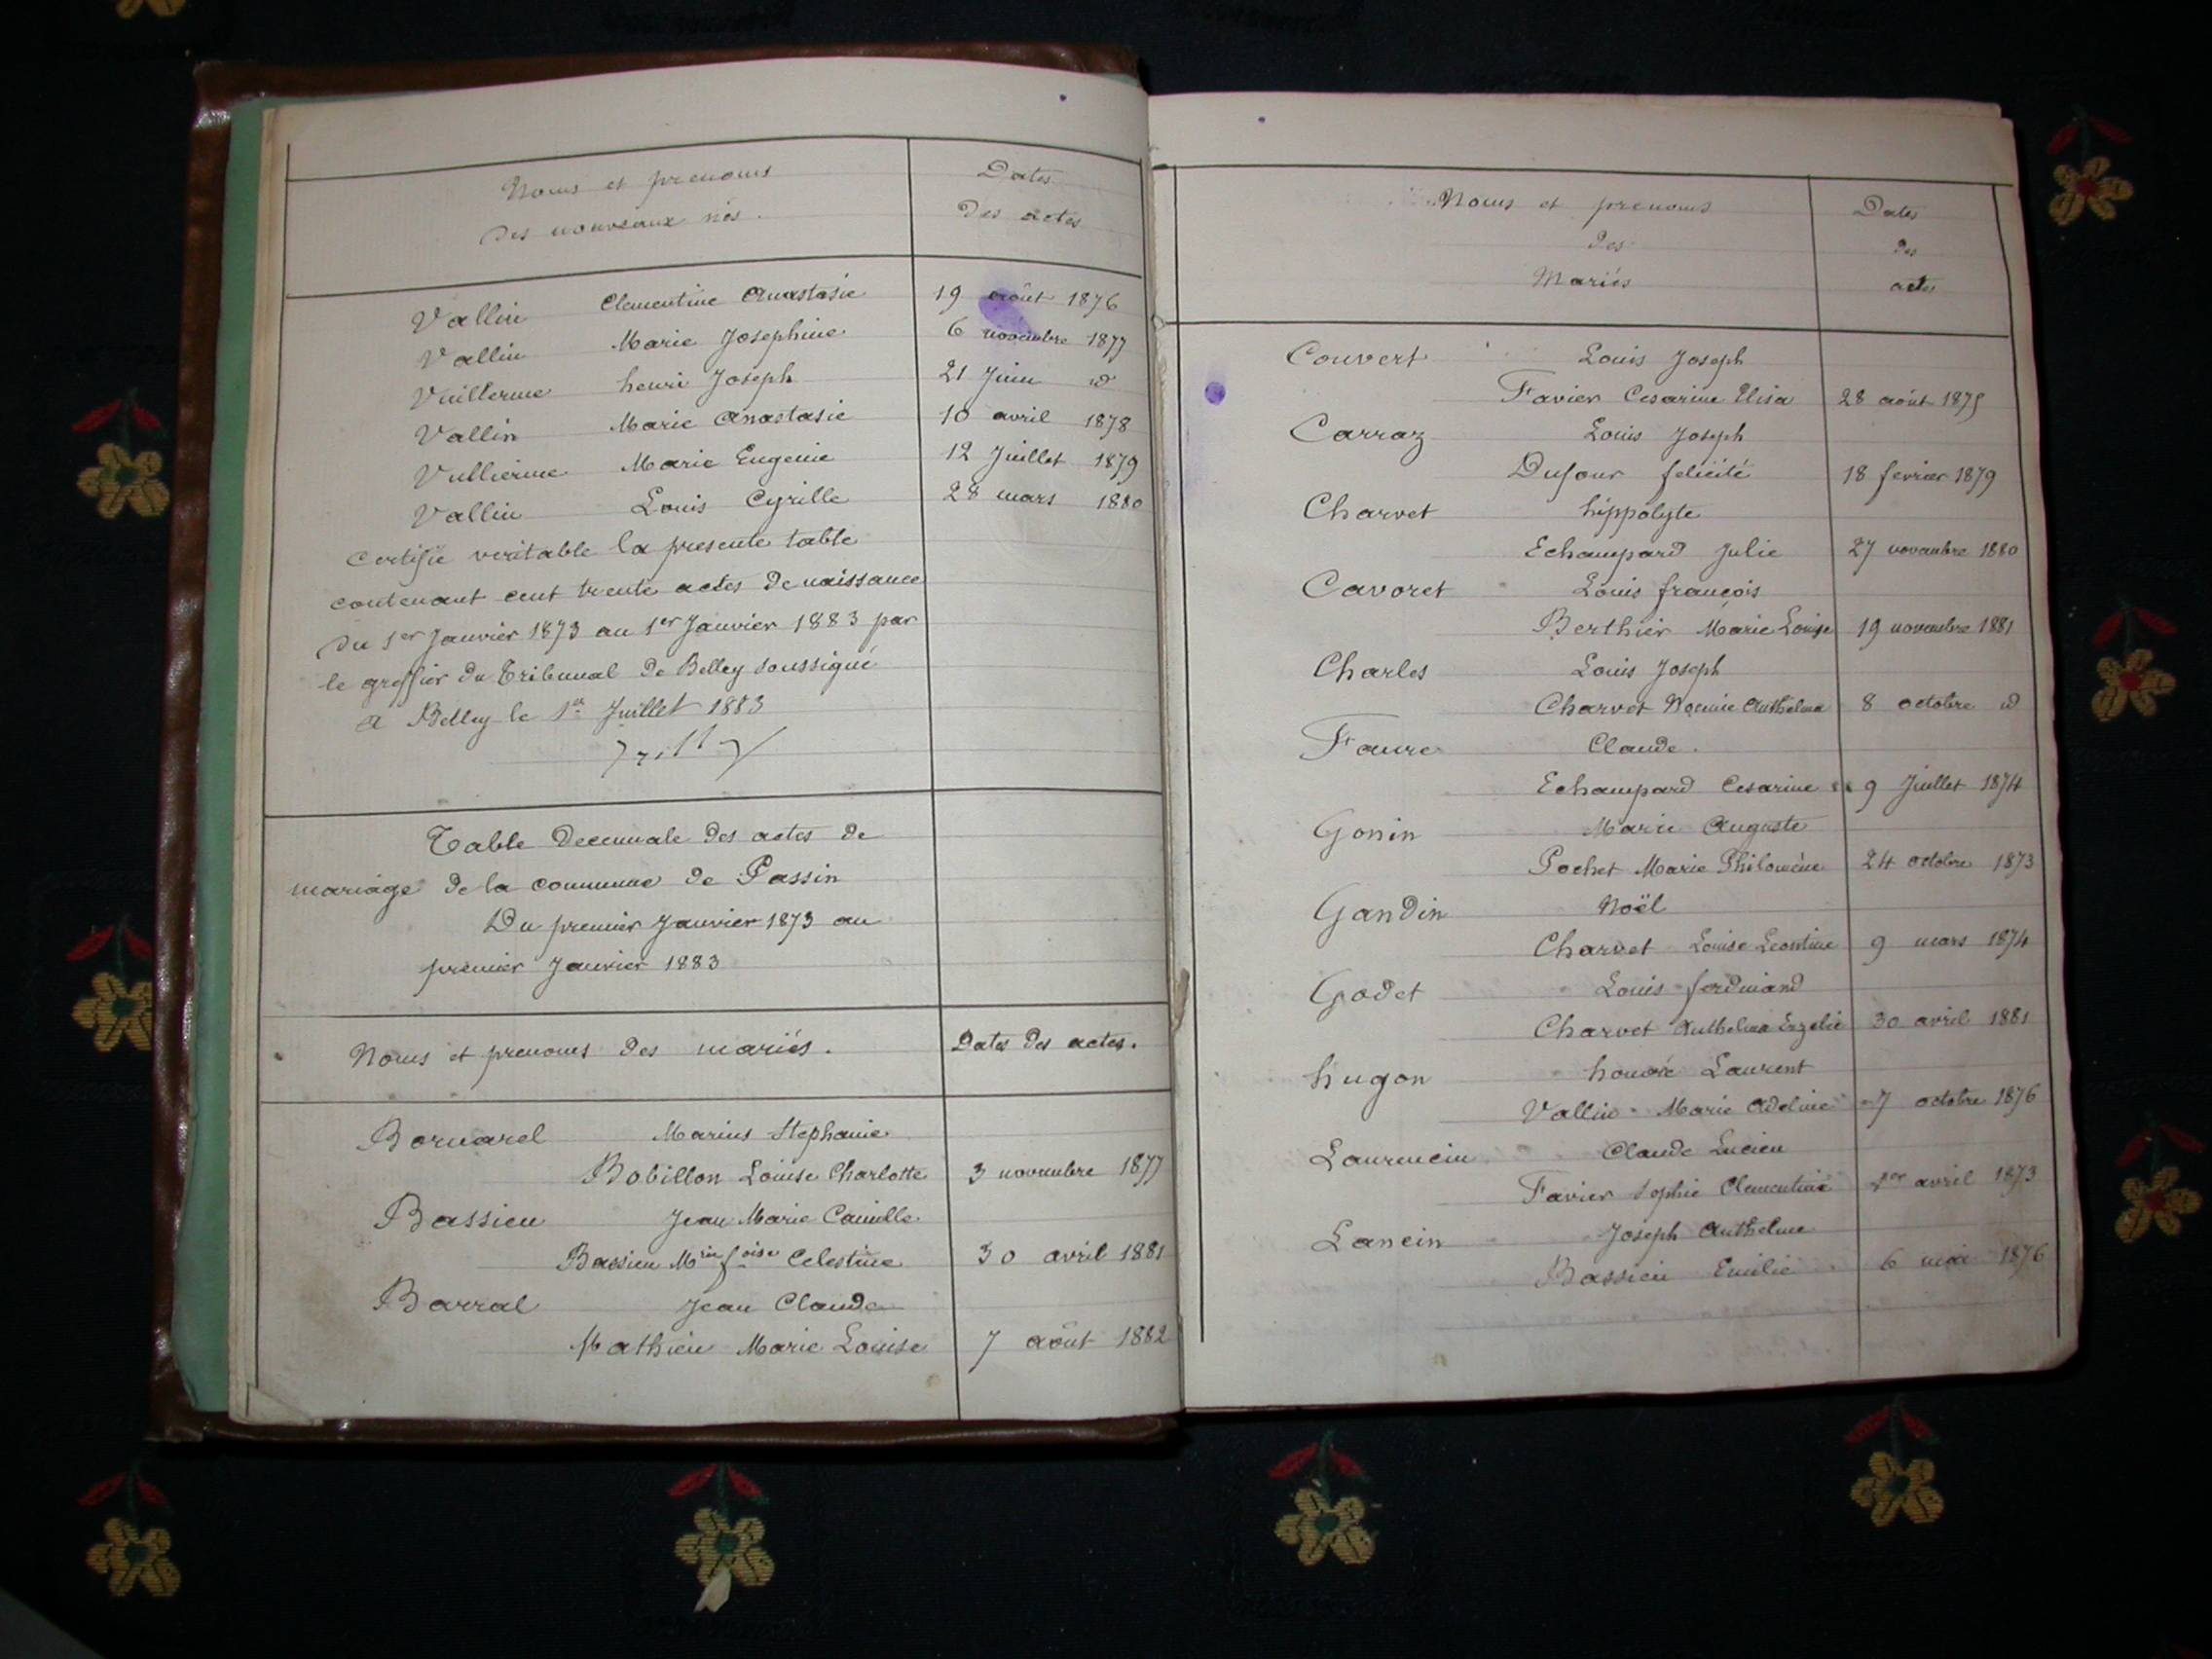 Noms et prenoms
des nouveaux nés.
Dates
des actes
Vallin Clementine Anastasie 19 août 1876
Vallin Marie Josephine 6 novembre 1877
Vuillerme henri Joseph 21 Juin d
Vallin Marie Anastasie 10 avril 1878
Vullierme Marie Eugenie 12 Juillet 1879
Vallin Louis Cyrille 28 mars 1880
Certifié veritable la presente table
contenant cent trente actes de naissance
du 1er Janvier 1873 au 1er Janvier 1883 par
le greffier du Tribunal de Belley soussigné
A Belley le 1er Juillet 1883
Table Decennale des actes de
mariage de la commune de Passin
Du premier Janvier 1873 au
premier Janvier 1883
Noms et prenoms des mariés. Dates des actes.
Bornarel Marius Stephanie
Bobillon Louise Charlotte 3 novembre 1877
Bassieu Jean Marie Camille
Bassieu Mrie foise Celestine 30 avril 1881
Barral Jean Claude
Mathieu Marie Louise 7 août 1882
Noms et prenoms
des
Mariés
Dates
des
actes
Couvert Louis Joseph
Favier Cesarine Elisa 28 août 1875
Carraz Louis Joseph
Dufour felicité 18 fevrier 1879
Charvet hippolyte
Echampard Julie 27 novembre 1880
Cavoret Louis françois
Berthier Marie Louise 19 novembre 1881
Charles Louis Joseph
Charvet Noemie Anthelma 8 octobre d
Faure Claude.
Echampard Cesarine 9 Juillet 1874
Gonin Marie Auguste
Pochet Marie Philomène 24 octobre 1873
Gandin Noël
Charvet Louise Leontine 9 mars 1874
Godet Louis ferdinand
Charvet Anthelma 30 avril 1881
hugon honoré Laurent
Vallin Marie Adeline 7 octobre 1876
Laurencin Claude Lucien
Favier Sophie Clementine 1er avril 1873
Lancin Joseph Anthelme
Bassieu Emilie 6 mai 1876